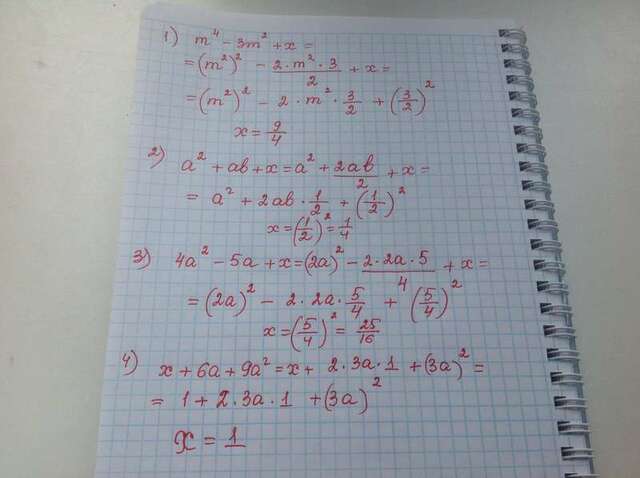 1) m⁴ - 3m² + x =
= (m²)² - (2 · m² · 3)/2 + x =
= (m²)² - 2 · m² · 3/2 + (3/2)²
x = 9/4
2) a² + ab + x = a² + 2ab/2 + x =
= a² + 2ab · 1/2 + (1/2)²
x = (1/2)² = 1/4
3) 4a² - 5a + x = (2a)² - (2 · 2a · 5)/4 + x =
= (2a)² - 2 · 2a · 5/4 + (5/4)²
x = (5/4)² = 25/16
4) x + 6a + 9a² = x + 2 · 3a · 1 + (3a)² =
= 1 + 2 · 3a · 1 + (3a)²
x = 1